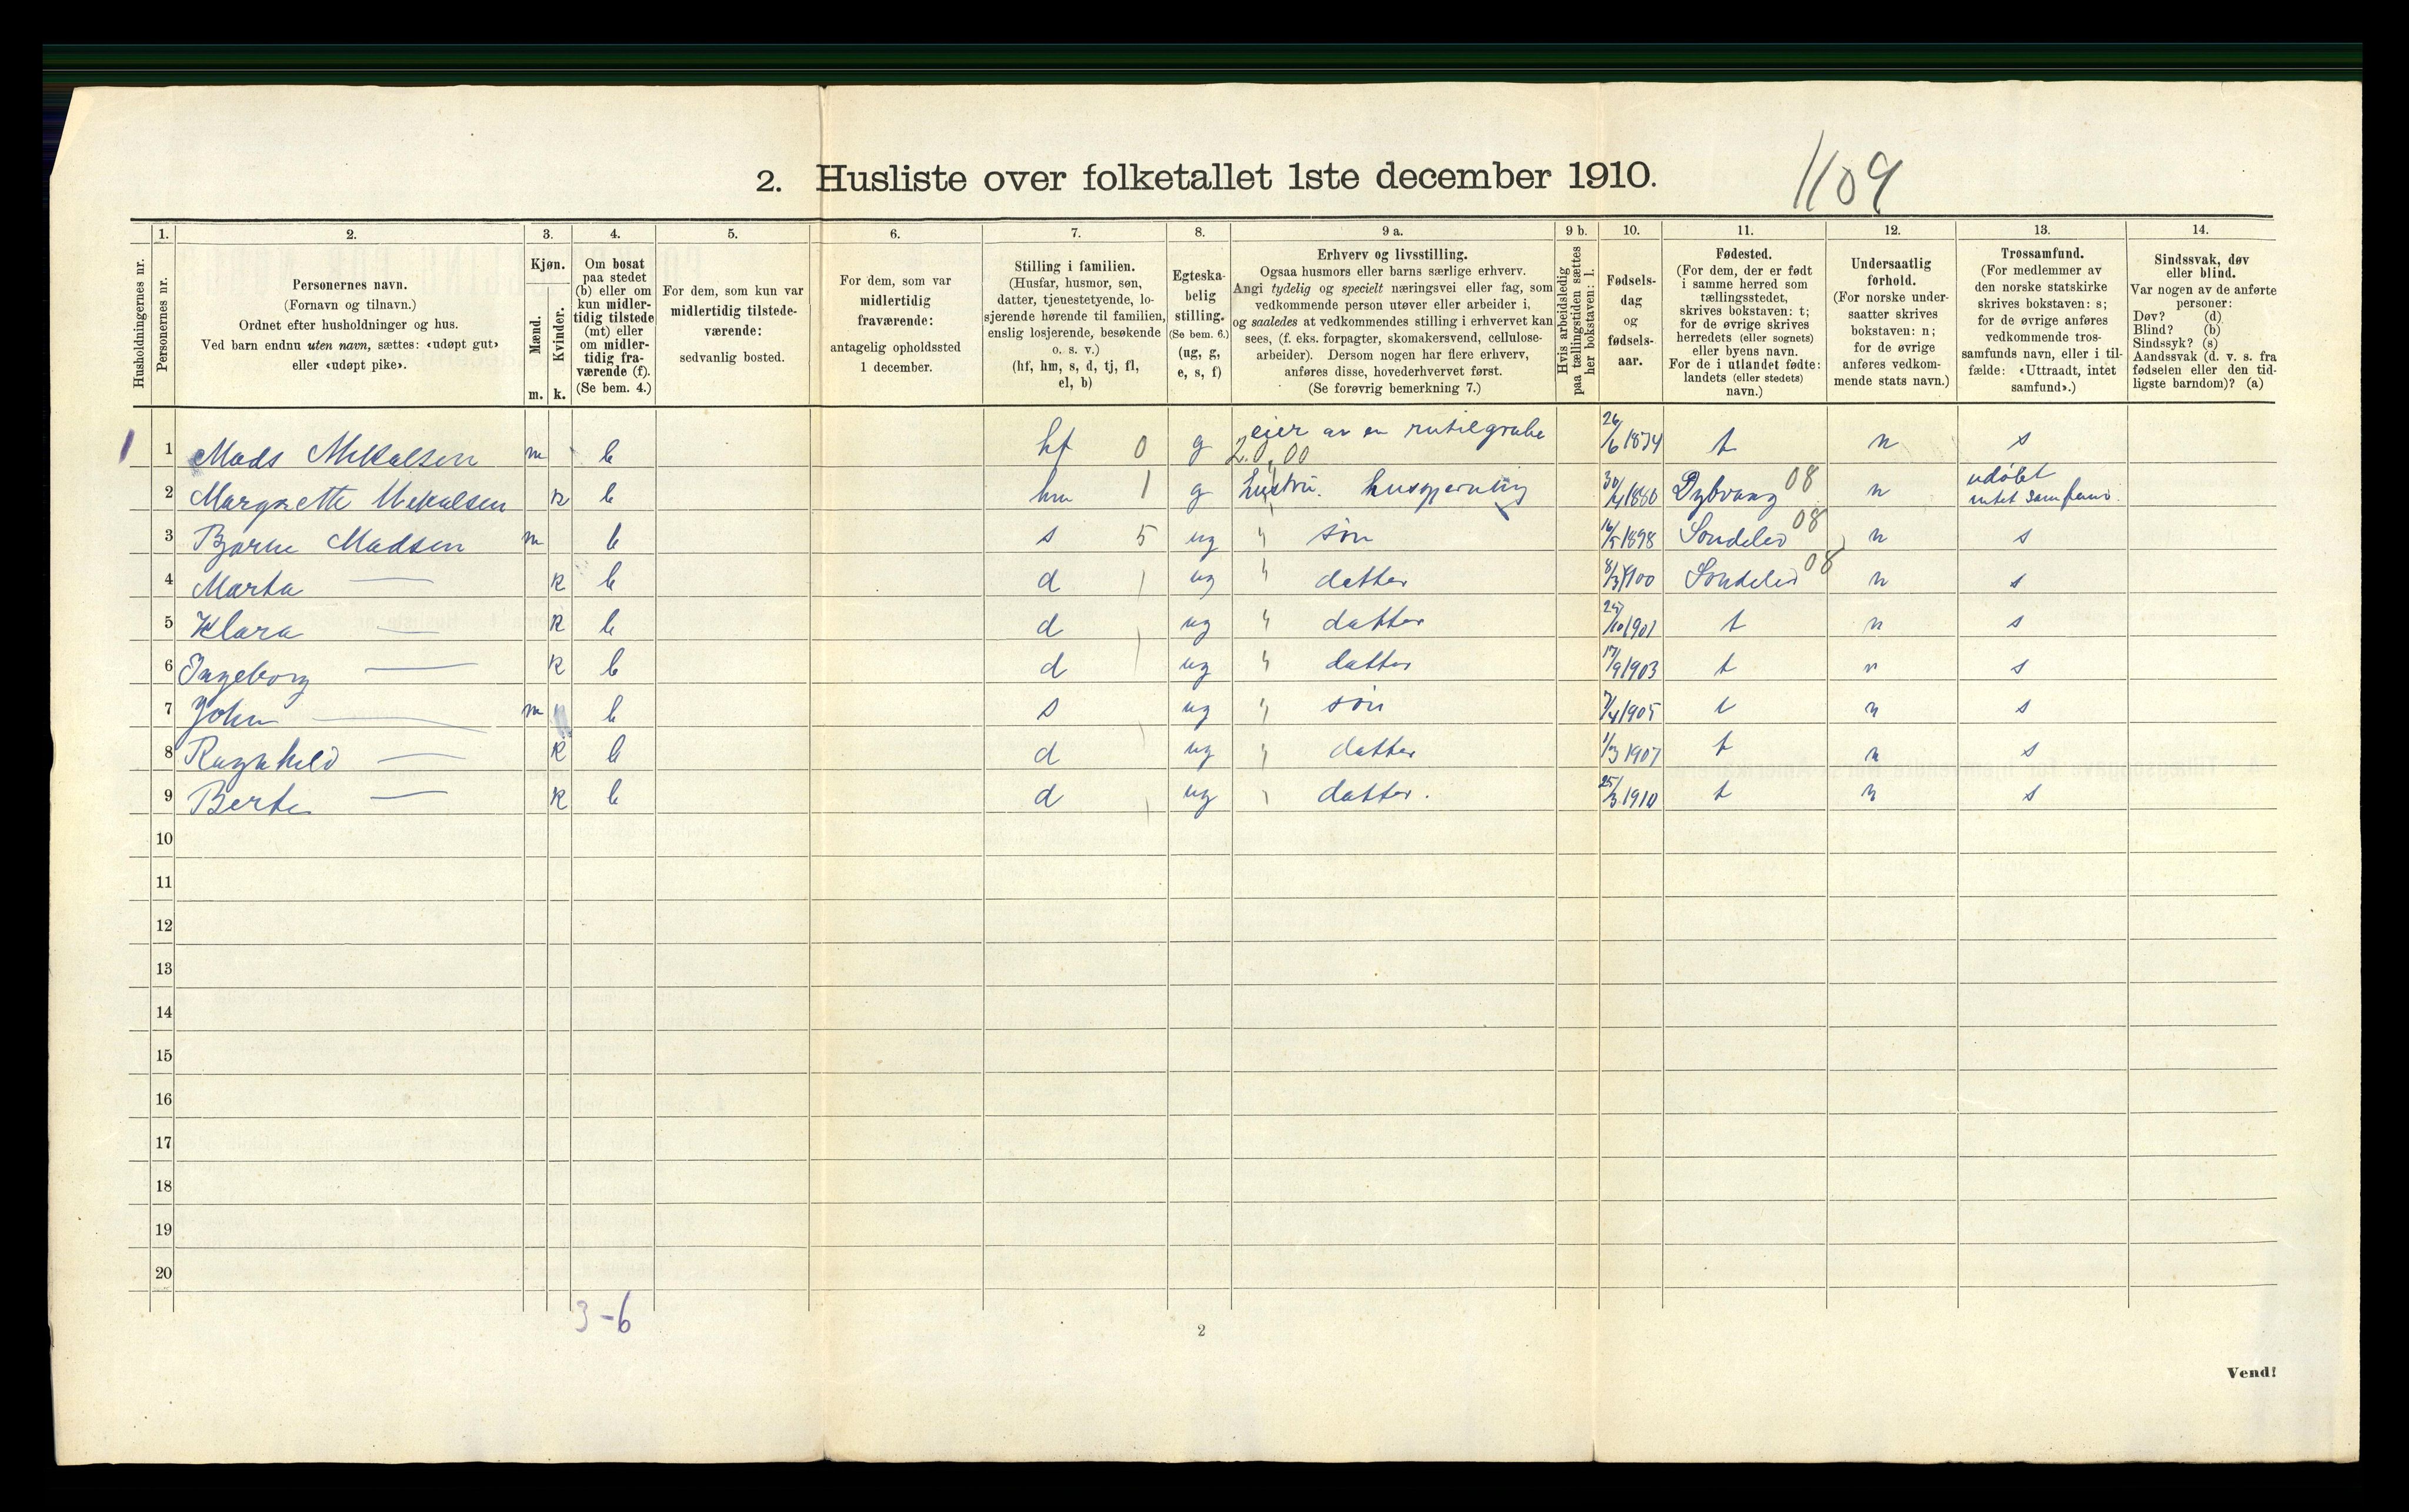 2. Husliste over folketallet 1ste december 1910.
1109
1. 2. 3. 4. 5. 6. 7. 8. 9 a. 9 b. 10. 11. 12. 13. 14.
Husholdningernes nr.
Personernes nr.
Personernes navn.
(Fornavn og tilnavn.)
Ordnet efter husholdninger og hus.
Ved barn endnu uten navn, sættes: «udøpt gut»
eller «udøpt pike».
Kjøn.
Mænd.
Kvinder.
m. k.
Om bosat
paa stedet
(b) eller om
kun midler-
tidig tilstede
(mt) eller
om midler-
tidig fra-
værende (f).
(Se bem. 4.)
For dem, som kun var
midlertidig tilstede-
værende:
sedvanlig bosted.
For dem, som var
midlertidig
fraværende:
antagelig opholdssted
1 december.
Stilling i familien.
(Husfar, husmor, søn,
datter, tjenestetyende, lo-
sjerende hørende til familien,
enslig losjerende, besøkende
o. s. v.)
(hf, hm, s, d, tj, fl,
el, b)
Egteska-
belig
stilling.
(Se bem. 6.)
(ug, g,
e, s, f)
Erhverv og livsstilling.
Ogsaa husmors eller barns særlige erhverv.
Angi tydelig og specielt næringsvei eller fag, som
vedkommende person utøver eller arbeider i,
og saaledes at vedkommendes stilling i erhvervet kan
sees, (f. eks. forpagter, skomakersvend, cellulose-
arbeider). Dersom nogen har flere erhverv,
anføres disse, hovederhvervet først.
(Se forøvrig bemerkning 7.)
Hvis arbeidsledig
paa tællingstiden sættes
her bokstaven: l.
Fødsels-
dag
og
fødsels-
aar.
Fødested.
(For dem, der er født
i samme herred som
tællingsstedet,
skrives bokstaven: t;
for de øvrige skrives
herredets (eller sognets)
eller byens navn.
For de i utlandet fødte:
landets (eller stedets)
navn.)
Undersaatlig
forhold.
(For norske under-
saatter skrives
bokstaven: n;
for de øvrige
anføres vedkom-
mende stats navn.)
Trossamfund.
(For medlemmer av
den norske statskirke
skrives bokstaven: s;
for de øvrige anføres
vedkommende tros-
samfunds navn, eller i til-
fælde: «Uttraadt, intet
samfund».)
Sindssvak, døv
eller blind.
Var nogen av de anførte
personer:
Døv? (d)
Blind? (b)
Sindssyk? (s)
Aandssvak (d. v. s. fra
fødselen eller den tid-
ligste barndom)? (a)
1 1 Mads Mikalsen m b hf 0 g eier av en rutilgrube 2.0,00 26/6 1874 t n s
2 Margrethe Mikalsen k b hm 1 g hustru. husgjerning 30/4 1880 Dybvaag 08 n udøbt intet samfund.
3 Bjarne Madsen m b s 5 ug " søn 16/5 1898 Søndeled 08 n s
4 Marta — k b d ug " datter 8/3 1900 Søndeled 08 n s
5 Klara — k b d ug " datter 24/10 1901 t n s
6 Ingeborg — k b d ug " datter 17/9 1903 t n s
7 John — m b s ug " søn 7/4 1905 t n s
8 Ragnhild — k b d ug " datter 1/3 1907 t n s
9 Berte — k b d ug " datter. 25/3 1910 t n s
10
11
12
13
14
15
16
17
18
19
20
3-6
2
Vend!